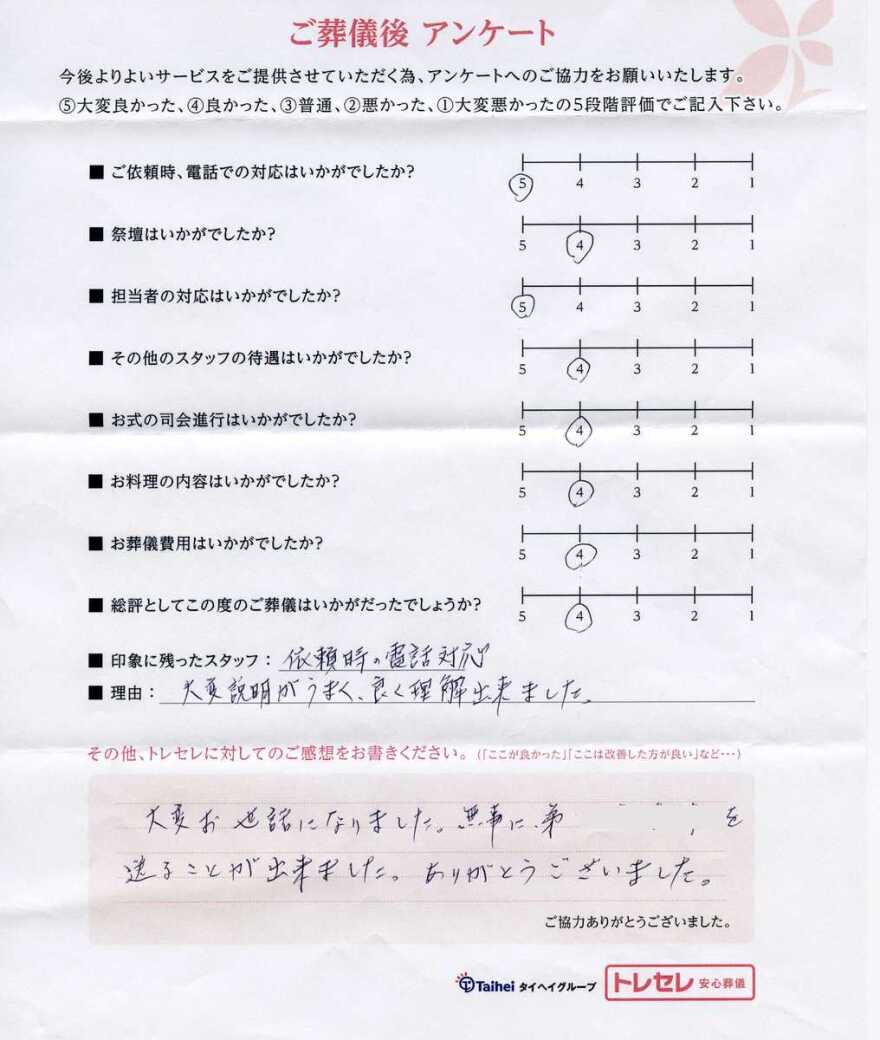 ご葬儀後 アンケート
今後よりよいサービスをご提供させていただく為、アンケートへのご協力をお願いいたします。
⑤大変良かった、④良かった、③普通、②悪かった、①大変悪かったの5段階評価でご記入下さい。
■ ご依頼時、電話での対応はいかがでしたか?
5 4 3 2 1
■ 祭壇はいかがでしたか?
5 4 3 2 1
■ 担当者の対応はいかがでしたか?
5 4 3 2 1
■ その他のスタッフの待遇はいかがでしたか?
5 4 3 2 1
■ お式の司会進行はいかがでしたか?
5 4 3 2 1
■ お料理の内容はいかがでしたか?
5 4 3 2 1
■ お葬儀費用はいかがでしたか?
5 4 3 2 1
■ 総評としてこの度のご葬儀はいかがだったでしょうか?
5 4 3 2 1
■ 印象に残ったスタッフ： 依頼時の電話対応
■ 理由： 大変説明がうまく、良く理解出来ました。
その他、トレセレに対してのご感想をお書きください。(「ここが良かった」「ここは改善した方が良い」など…)
大変お世話になりました。無事に、弟 を
送ることが出来ました。ありがとうございました。
ご協力ありがとうございました。
Taihei タイヘイグループ トレセレ 安心葬儀